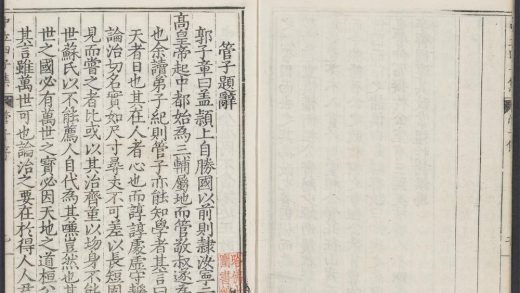 管子題辭
郭子章曰盖潁上自勝國以前則隸汝寧
高皇帝起中都始為三輔屬地而管敬叔遂
也余讀弟子紀則管子亦能知學者其言曰
天者日也其在人者心也而諄諄處虛守
論治切名實如尺寸尋丈不可差以長短國
見而嘗之者比或以其治齊重以均身不能
世蘇氏以不能薦人自代為其嘆豈然也其
世之國必有萬世之寶必因天地之道桓公
其言雖萬世可也論治之要在於得人人君